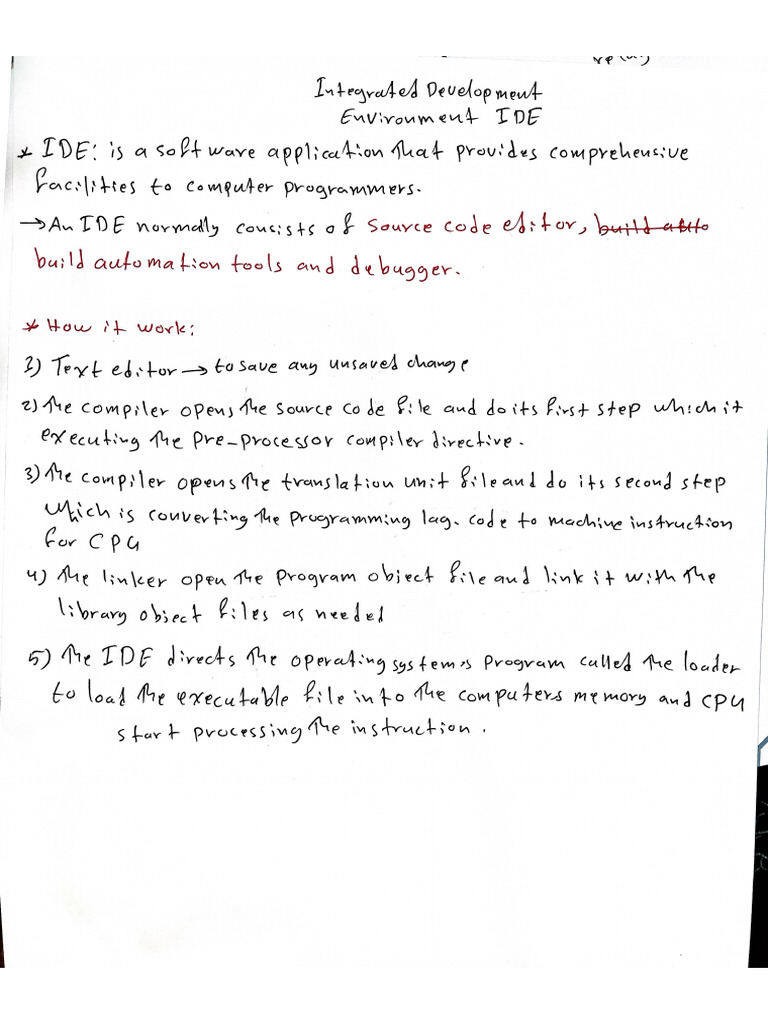 Integrated Development
Environment IDE
* IDE: is a software application that provides comprehensive
facilities to computer programmers.
→ An IDE normally consists of source code editor, build auto
build automation tools and debugger.
* How it work:
1) Text editor → to save any unsaved change
2) The compiler opens the source code file and do its first step which it
executing the pre-processor compiler directive.
3) The compiler opens the translation unit file and do its second step
which is converting the programming lag. code to machine instruction
for CPU
4) The linker open the program object file and link it with the
library object files as needed
5) The IDE directs the operating system's program called the loader
to load the executable file into the computers memory and CPU
start processing the instruction.